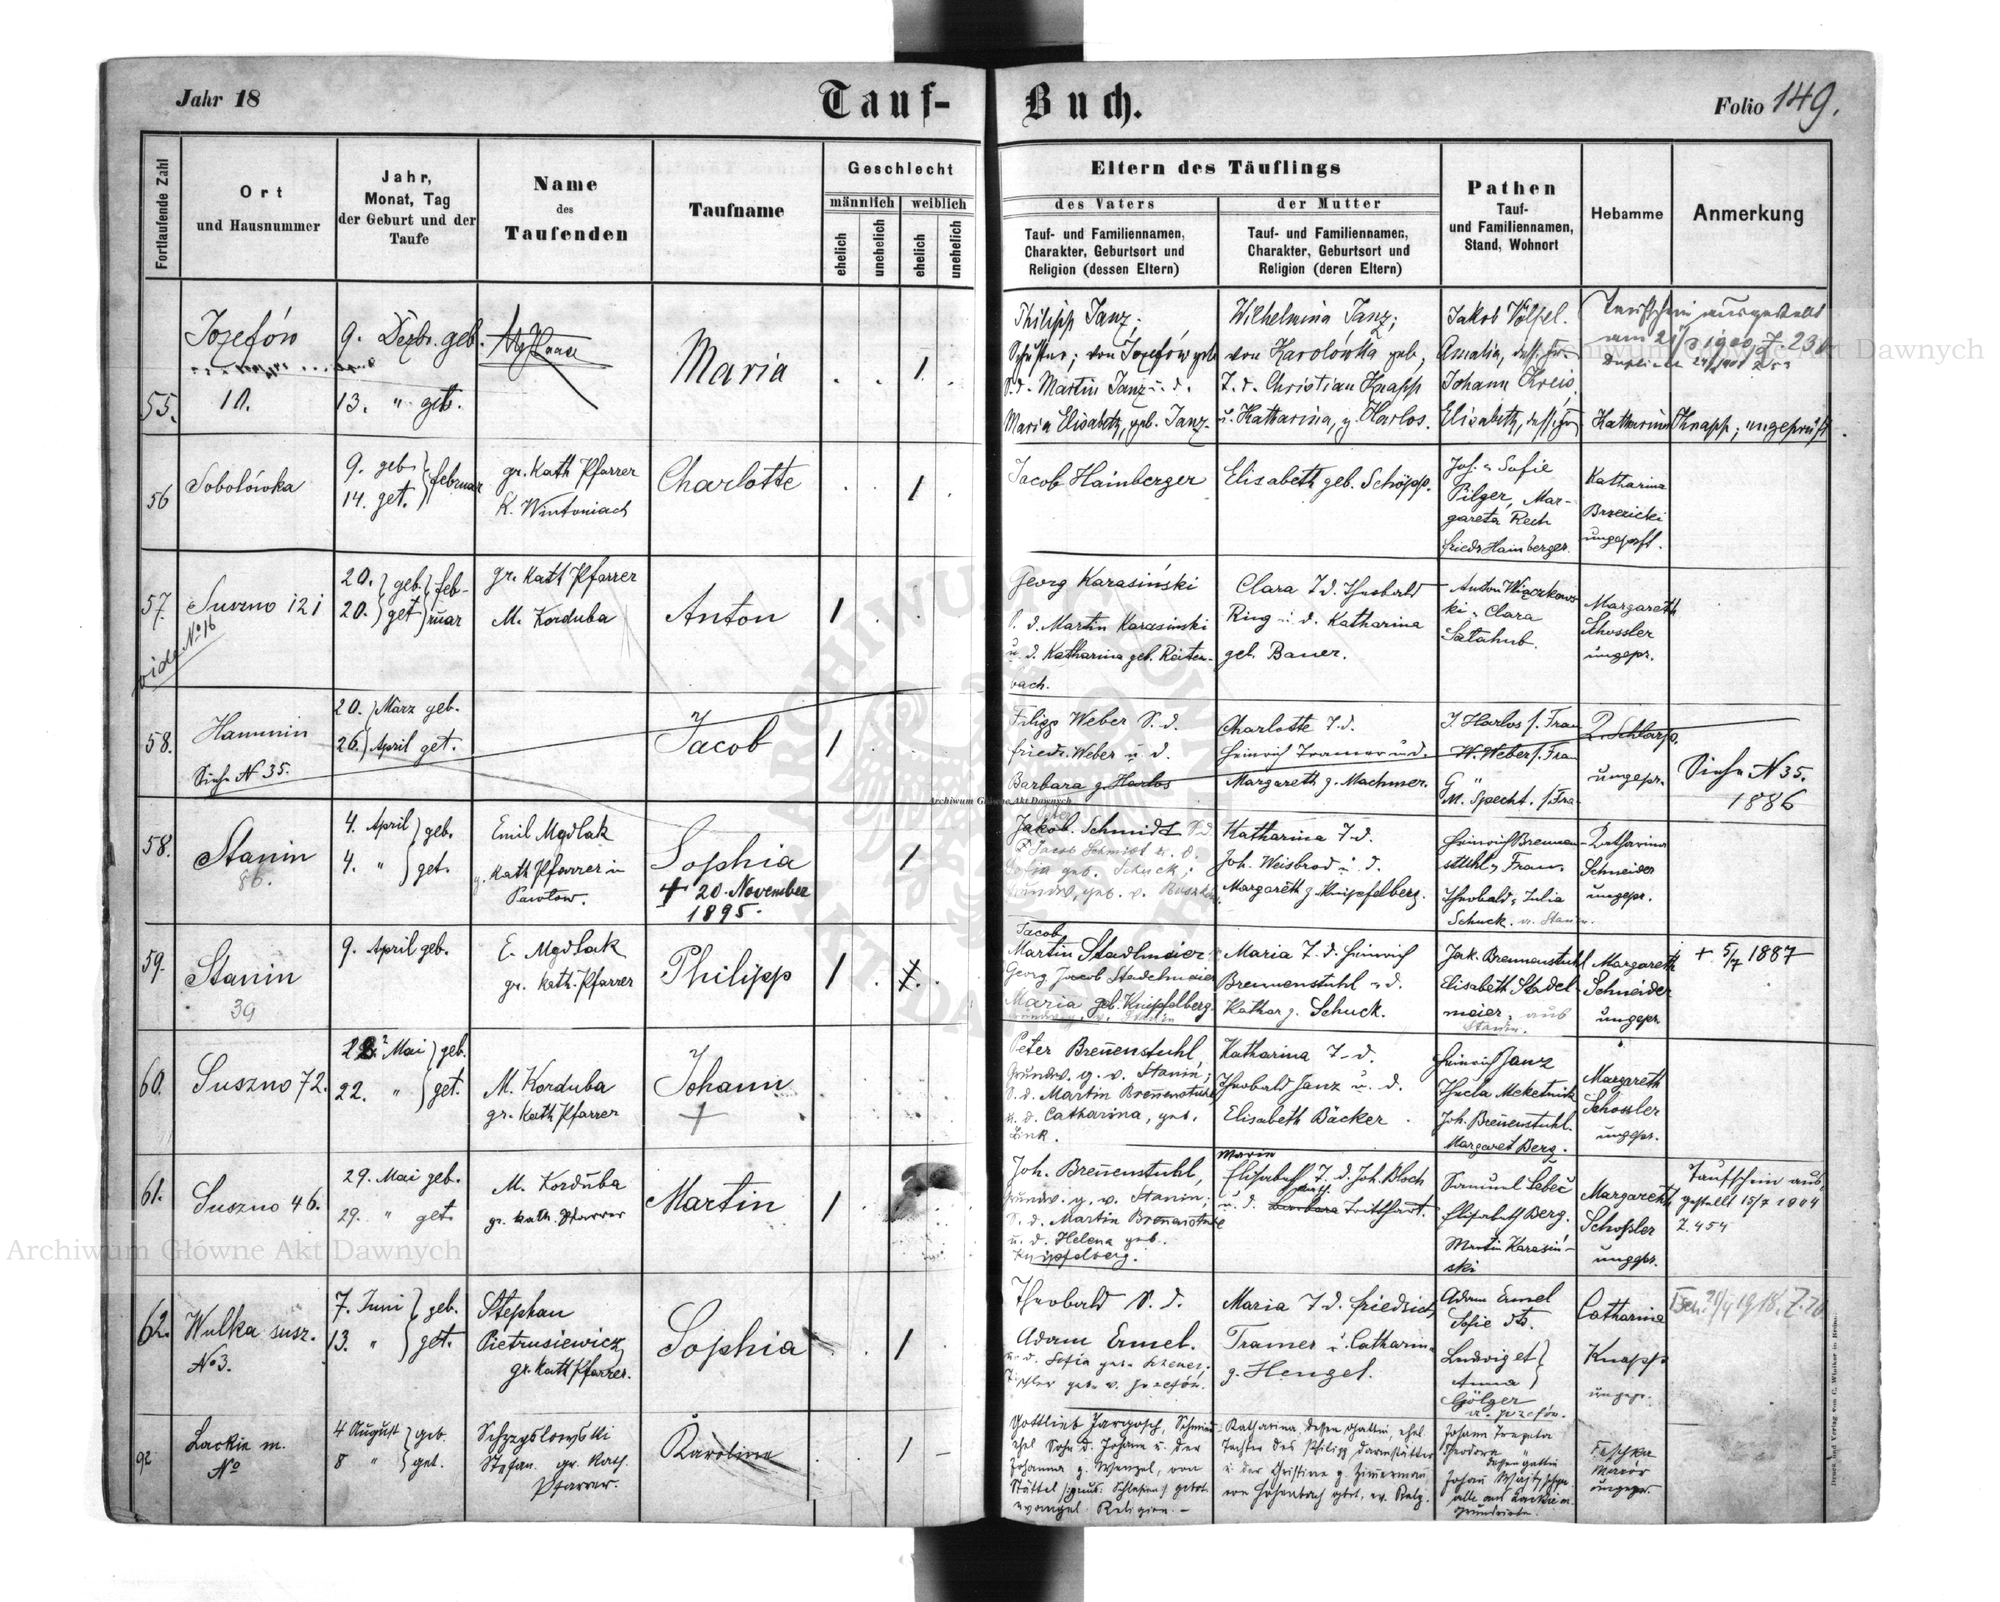 Jahr 18
Tauf-
Buch.
Folio 149.
Fortlaufende Zahl
Ort
und Hausnummer
Jahr,
Monat, Tag
der Geburt und der
Taufe
Name
des
Taufenden
Taufname
Geschlecht
männlich
weiblich
ehelich
unehelich
ehelich
unehelich
Eltern des Täuflings
des Vaters
Tauf- und Familiennamen,
Charakter, Geburtsort und
Religion (dessen Eltern)
der Mutter
Tauf- und Familiennamen,
Charakter, Geburtsort und
Religion (deren Eltern)
Pathen
Tauf-
und Familiennamen,
Stand, Wohnort
Hebamme
Anmerkung
55.
Jozefów
10.
9. Dezbr. geb.
13. " get.
Maria
1
Philipp Janz,
Schuster; von Jozefów geb.
S. d. Martin Janz u. d.
Maria Elisabeth, geb. Janz.
Wilhelmina Janz;
von Karolówka geb.,
T. d. Christian Knapp
u. Katharina, g. Harlos.
Jakob Völpel.
Amalia, dess. Fr.
Johann Kreis
Elisabeth, dess. Fr.
Katharina Knapp; ungeprüft.
Taufschein ausgestellt
56
Sobolówka
9. geb.
14. get.
Februar
gr. Kath Pfarrer
K. Wintoniach
Charlotte
1
Jacob Hainberger
Elisabeth geb. Schöpp.
Joh. u. Sofie
Pilger, Mar-
gareta Rech
Friedr Hainberger.
Katharina
Brzezicki
ungeprft.
57.
vide No 16
Suszno 121
20. geb.
20. get.
Feb-
ruar
gr. Kath Pfarrer
M. Korduba
Anton
1
Georg Karasiński
S. d. Martin Karasinski
u. d. Katharina geb. Reiten-
bach.
Clara T. d. Theobald
Ring u. d. Katharina
geb. Bauer.
Anton Wiączkows-
ki, Clara
Satahub.
Margareth
Schossler
ungepr.
58.
Hanunin
Siehe N 35.
20. März geb.
26. April get.
Jacob
1
Filipp Weber S. d.
Friedr. Weber u. d.
Barbara g. Harlos
Charlotte T. d.
Heinrich Tramer u. d.
Margareth g. Machmer.
J. Harlos s. Frau
W. Weber s. Frau
G "
M. Specht. s. Fra
ungepr.
Siehe N 35.
1886
58.
Stanin
86.
4. April geb.
4. " get.
Emil Mydlak
g. Kath Pfarrer in
Pawłow.
Sophia
+ 20. November
1895.
1
Jakob. Schmidt S. d.
Jacob Schmidt u. d.
Sofia geb. Schuck;
Katharina T. d.
Joh. Weisbrod u. d.
Margareth g. Knipfelberg.
Heinrich Brennen-
stuhl, Frau,
Theobald, Julia
Schuck. a. Stanin.
Katharina
Schneider
ungepr.
59.
Stanin
39
9. April geb.
E. Mydlak
gr. Kath. Pfarrer
Philipp
1
Jacob
Martin Stadlmaier
Georg Jacob Stadelmaier
Maria geb. Knipfelberg.
Maria T. d. Heinrich
Brennenstuhl u. d.
Kathar g. Schuck.
Jak. Brennenstuhl
Elisabeth Stadel-
meier. aus
Stanin.
Margareth
Schneider
ungepr.
+ 5/7 1887
60.
Suszno 72.
22. Mai geb.
22. " get.
M. Korduba
gr. Kath Pfarrer
Johann
+
Peter Breñenstuhl,
Grundw. g. v. Stanin;
S. d. Martin Breñenstuhl
u. d. Catharina, geb.
Link.
Katharina T. d.
Theobald Janz u. d.
Elisabeth Bäcker.
Heinrich Janz
Thecla Meketniuk
Joh. Breñenstuhl.
Margaret Berg.
Margareth
Schossler
ungepr.
61.
Suszno 46.
29. Mai geb.
29. " get.
M. Korduba
gr. kath. Pfarrer
Martin
1
Joh. Breñenstuhl,
Grundw. g. v. Stanin;
S. d. Martin Breñenstuhl
u. d. Helena geb.
Knipfelberg.
Maria
Elisabeth T. d. Joh. Bloch
u. d. Barbara Tritthart.
Samuel Lebeč
Elisabeth Berg.
Martin Karasiń-
ski
Margareth
Schossler
ungepr.
Taufschein aus-
gestellt 15/7 1904
Z. 454
62.
Wulka susz.
No 3.
7. Juni geb.
13. " get.
Stephan
Pietrusiewicz,
gr. Kath Pfarrer.
Sophia
1
Theobald S. d.
Adam Ermel.
Maria T. d. Friedrich
Tramer u. Catharina
g. Hengel.
Adam Ermel
Sofie dto.
Ludwig et
Anna
Gölger
a. Józefów.
Catharina
Knapp
ungepr.
92
Lackie m.
No
4 August geb.
8 " get.
Schzyslowski
Stefan gr. Kath.
Pfarrer.
Karoline
1
Gottlieb Jargosch, Schmied
ehel Sohn d. Johann u. der
Johanna g. Wenzel, von
evangel. Religion. -
Katharina, dessen Gattin, ehel.
Tochter des Philipp Darmstätter
u. der Christine g. Zimmerman,
Johann Trepeta
Theodora "
dessen Gattin
ungepr.
Archiwum Główne Akt Dawnych
Archiwum Główne Akt Dawnych
Archiwum Główne Akt Dawnych